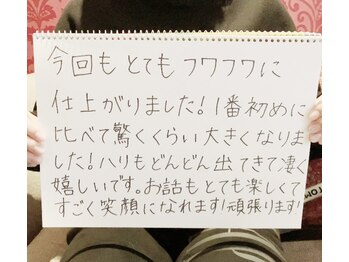 今回もとてもフワフワに
仕上がりました！1番初めに
比べて驚くくらい大きくなりま
した！ハリもどんどん出てきて凄く
嬉しいです。お話もとても楽しくて
すごく笑顔になれます！頑張ります！